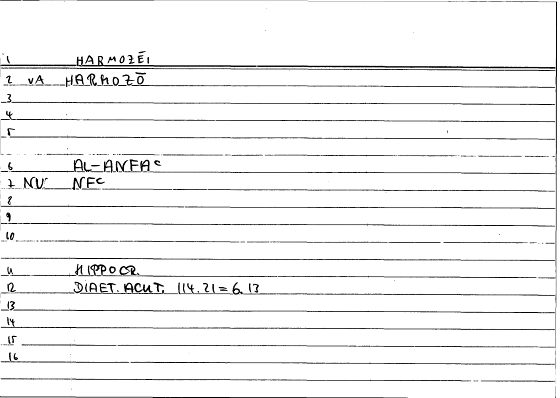 1 HARMOZĒI
2 VA HARMOZŌ
3
4
5
6 AL-ANFAᶜ
7 NV NFᶜ
8
9
10
11 HIPPOCR.
12 DIAET. ACUT. 114.21 = 6.13
13
14
15
16